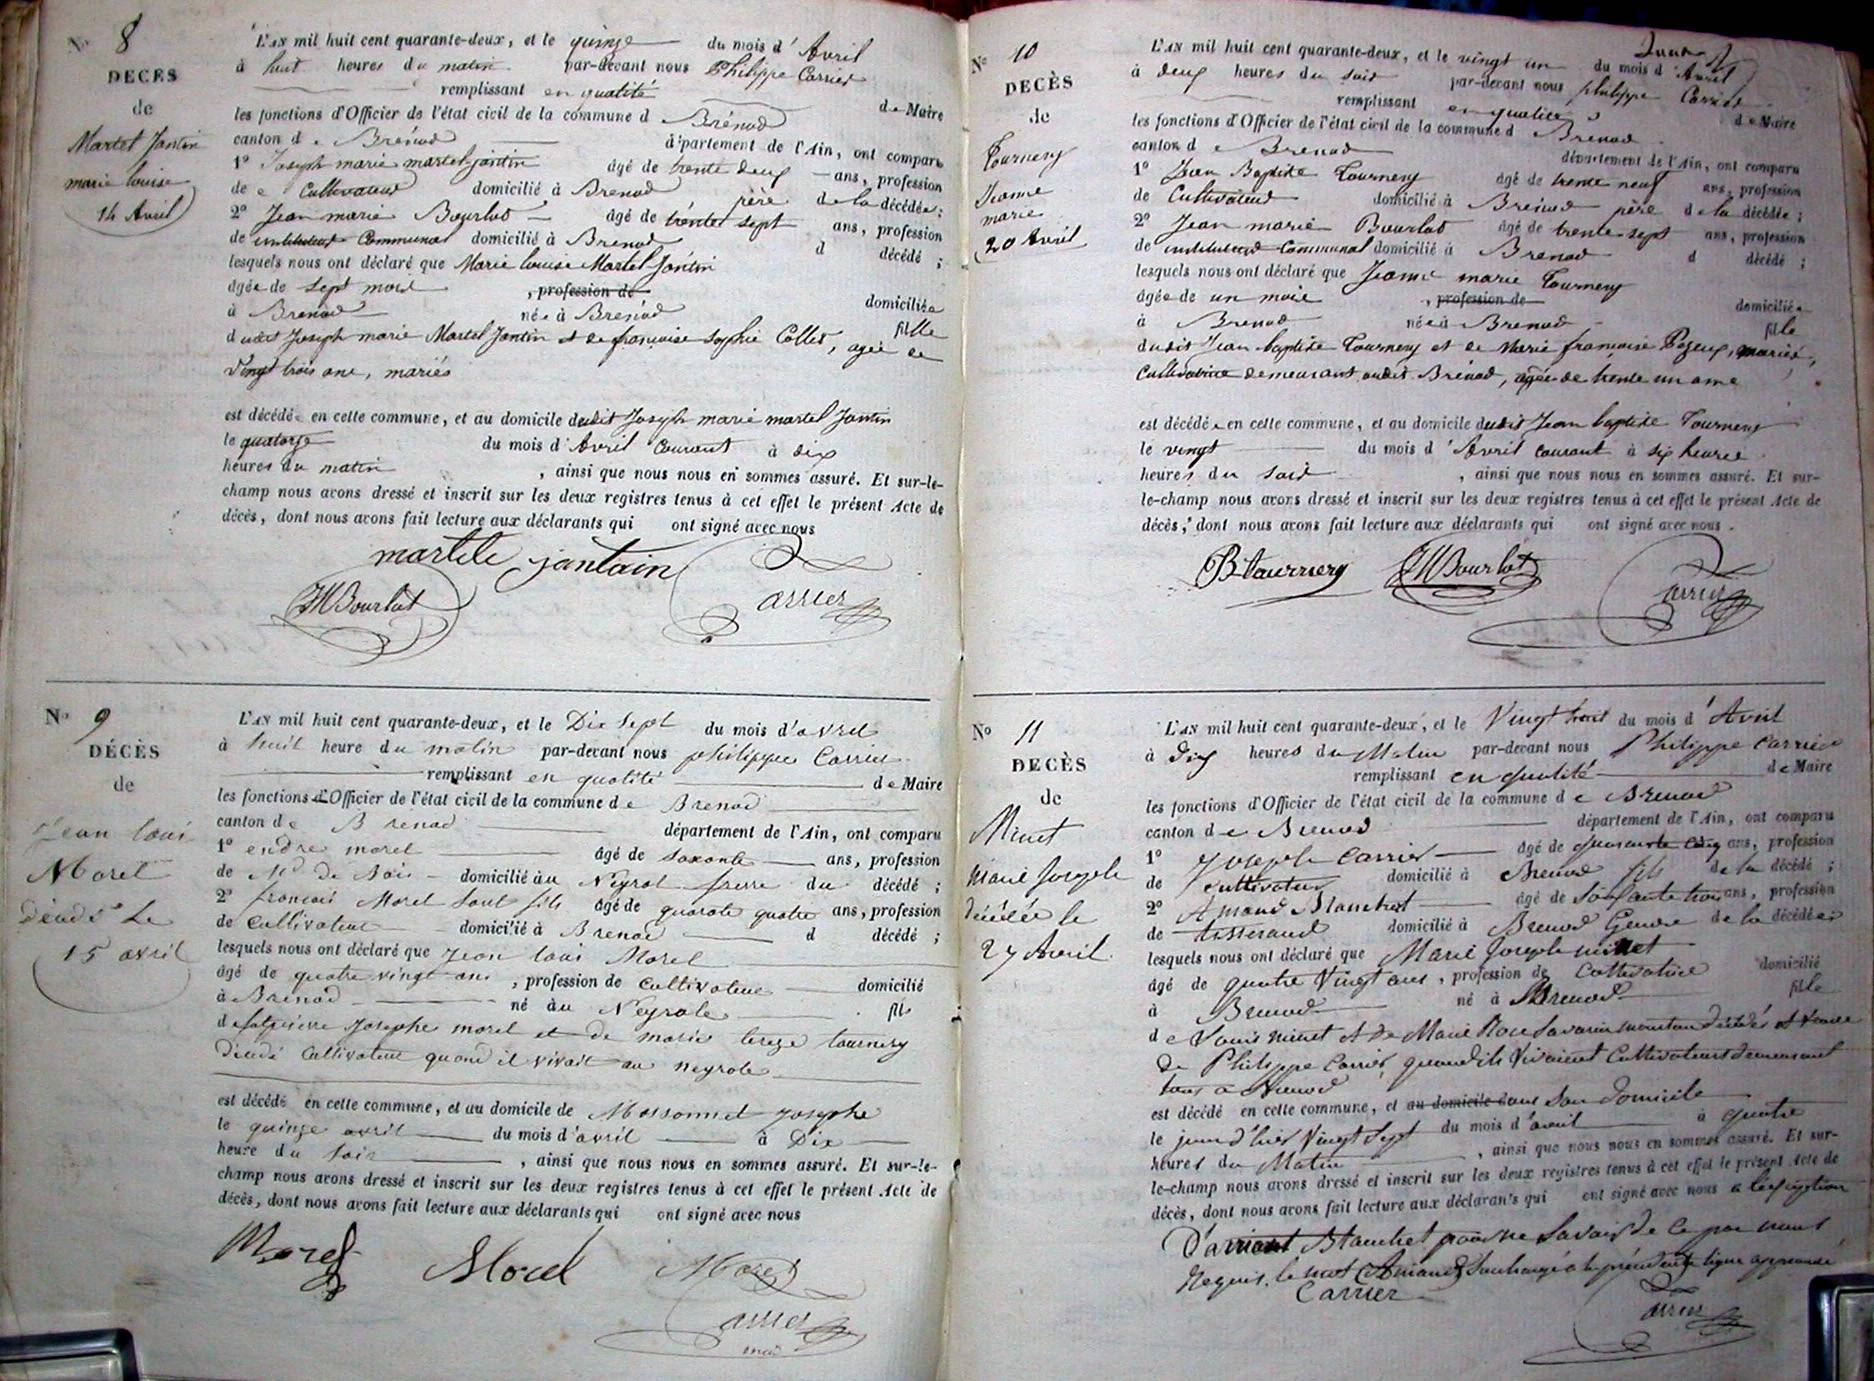 N° 8
DECES
de
Martel Jantin
marie louise
14 Avril
L'AN mil huit cent quarante-deux, et le quinze du mois d'Avril
à huit heures du matin par-devant nous Philippe Carrier
remplissant en qualité de Maire
les fonctions d'Officier de l'état civil de la commune d Brénod
canton de Brénod département de l'Ain, ont comparu
1° Joseph marie martel jantin âgé de trente deux ans, profession
de Cultivateur domicilié à Brenod père de la décédée;
2° Jean marie Bourlot âgé de trente sept ans, profession
de instituteur Communal domicilié à Brenod d décédé;
lesquels nous ont déclaré que Marie louise Martel Jantin
âgée de sept mois, profession de domiciliée
à Brenod née à Brenod fille
dudit Joseph marie Martel Jantin et de françoise Sophie Collet, agée de
Vingt trois ans, mariés
est décédée en cette commune, et au domicile dudit Joseph marie martel Jantin
le quatorze du mois d'Avril Courant à dix
heures du matin, ainsi que nous nous en sommes assuré. Et sur-le-
champ nous avons dressé et inscrit sur les deux registres tenus à cet effet le présent Acte de
décès, dont nous avons fait lecture aux déclarants qui ont signé avec nous
martele jantain
JMBourlot Carrier
N° 9
DÉCÈS
de
Jean loui
Morel
décadé Le
15 avril
L'AN mil huit cent quarante-deux, et le Dix Sept du mois d'avril
à huit heure du matin par-devant nous philippe Carrier
remplissant en qualité de Maire
les fonctions d'Officier de l'état civil de la commune de Brenod
canton de Brenod département de l'Ain, ont comparu
1° endre morel âgé de soxante ans, profession
de Md de Bois domicilié au Neyrol frerre du décédé;
2° francois Morel Sout fils âgé de quarate quatre ans, profession
de Cultivateur domicilié à Brenod d décédé;
lesquels nous ont déclaré que Jean loui Morel
âgé de quatre vingt ans, profession de Cultivateur domicilié
à Brenod né au Neyrole fils
de pierre Josephe morel et de marie tereze tournery
décadé Cultivateur quand il vivait au neyrole
est décédé en cette commune, et au domicile de Mossonnet Josephe
le quinze avril du mois d'avril à Dix
heure du Soir, ainsi que nous nous en sommes assuré. Et sur-le-
champ nous avons dressé et inscrit sur les deux registres tenus à cet effet le présent Acte de
décès, dont nous avons fait lecture aux déclarants qui ont signé avec nous
Morel Morel Morel
Carrier
N° 10
DÉCÈS
de
Tournery
Jeanne
marie
20 Avril
L'AN mil huit cent quarante-deux, et le vingt un du mois d'Avril
à deux heures du soir par-devant nous philippe Carrier
remplissant en qualité de Maire
les fonctions d'Officier de l'état civil de la commune d Brenod
canton de Brenod département de l'Ain, ont comparu
1° Jean Baptiste Tournery âgé de trente neuf ans, profession
de Cultivateur domicilié à Brénod père de la décédée;
2° Jean marie Bourlot âgé de trente sept ans, profession
de instituteur Communal domicilié à Brenod d décédé;
lesquels nous ont déclaré que Jeanne marie Tournery
âgée de un mois, profession de domiciliée
à Brenod née à Brenod fille
dudit Jean baptiste Tournery et de Marie françoise Pezeux, mariés,
Cultivatrice demeurant audit Brénod, agée de trente un ans
est décédée en cette commune, et au domicile dudit Jean baptiste Tournery
le vingt du mois d'Avril courant à six heures
heures du soir, ainsi que nous nous en sommes assuré. Et sur-
le-champ nous avons dressé et inscrit sur les deux registres tenus à cet effet le présent Acte de
décès, dont nous avons fait lecture aux déclarants qui ont signé avec nous.
JMBourlot Carrier
N° 11
DECÈS
de
Minet
Marie Josephe
décédée le
27 Avril
L'AN mil huit cent quarante-deux, et le Vingt huit du mois d'Avril
à Dix heures du Matin par-devant nous Philippe Carrier
remplissant en qualité de Maire
les fonctions d'Officier de l'état civil de la commune de Brenod
canton de Brenod département de l'Ain, ont comparu
1° Joseph Carrier âgé de quarante cinq ans, profession
de Cultivateur domicilié à Brenod fils de la décédé;
2° Amand Blanchet âgé de Soixante trois ans, profession
de tisserand domicilié à Brenod Gendre de la décédée
lesquels nous ont déclaré que Marie Josephe minet
âgé de quatre Vingt ans, profession de Cultivatrice domicilié
à Brenod né à Brenod fille
de Louis minet et de Marie Rose Savarin décédés et Veuve
de Philippe Carrier, quand ils Vivaient Cultivateurs demeurant
tous a Brenod
est décédé en cette commune, et au domicile dans Son Domicile
le jour d'hier Vingt Sept du mois d'avril à quatre
heures du Matin, ainsi que nous nous en sommes assuré. Et sur-
le-champ nous avons dressé et inscrit sur les deux registres tenus à cet effet le présent Acte de
décès, dont nous avons fait lecture aux déclarants qui ont signé avec nous a l'exception
D'amant Blanchet pour ne Savoir de Ce par nous
Requis. le mot Amand Surchargé à la précédente ligne approuvé
Carrier Carrier